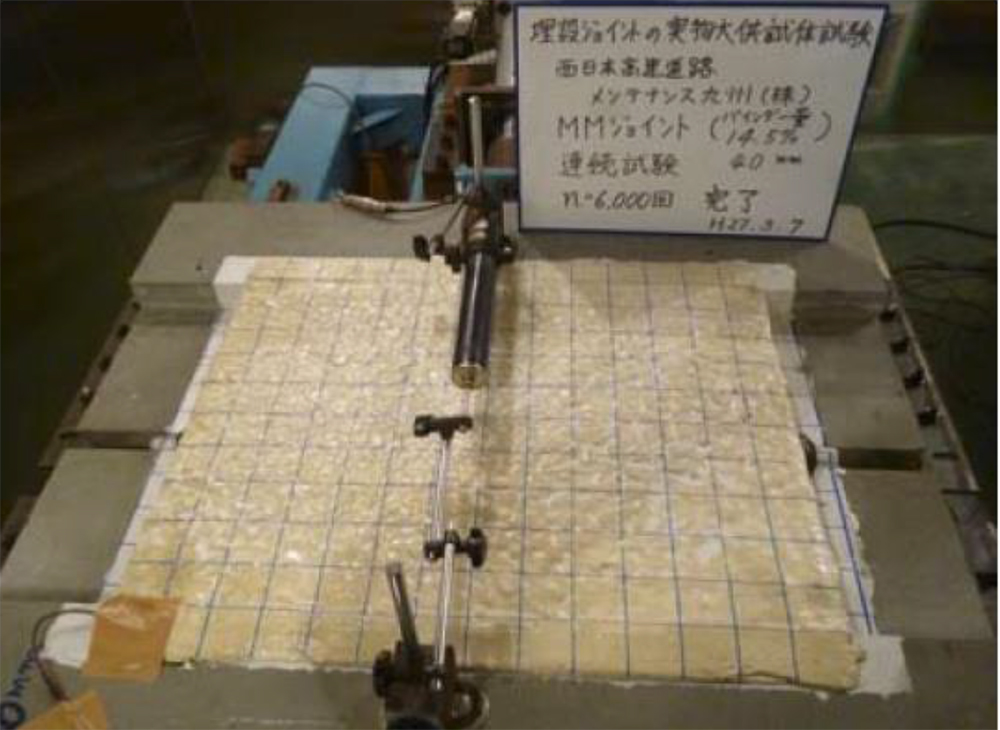 埋設ジョイントの実物大供試体試験
西日本高速道路
メンテナンス九州(株)
MMジョイント (バインダー量 14.5%)
連続試験 40mm
n=6,000回 完了
H27.3.7